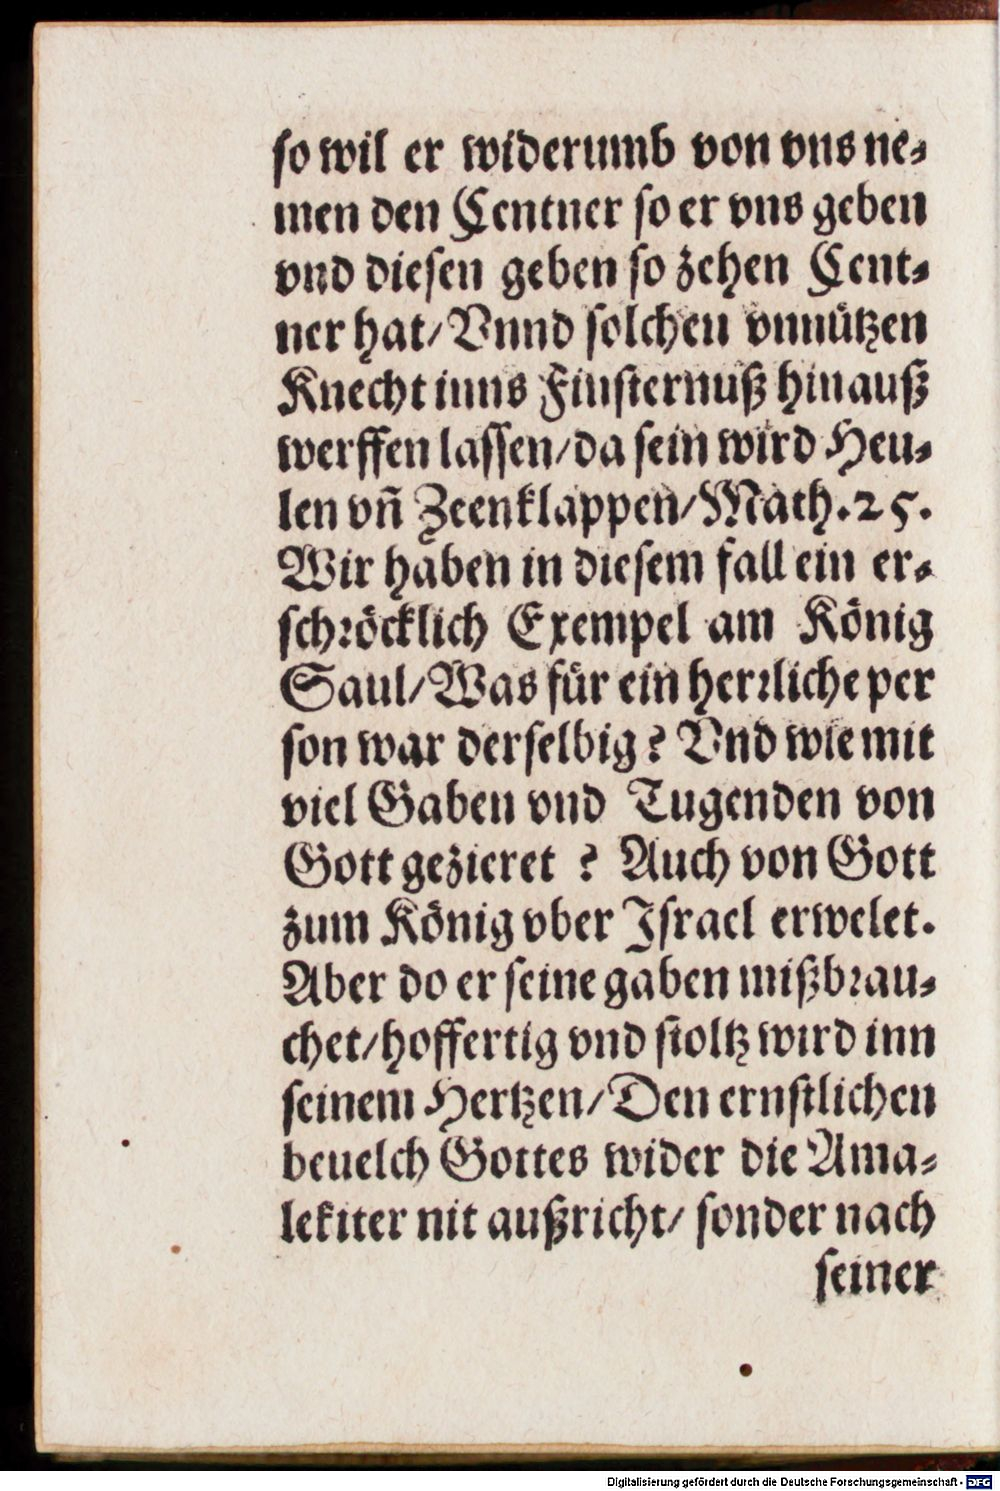 so wil er widerumb von vns ne⸗
men den Centner so er vns geben
vnd diesen geben so zehen Cent⸗
ner hat/ Vnnd solchen vnnützen
Knecht inns Finsternuß hinauß
werffen lassen/ da sein wird Heu⸗
len vñ Zeenklappen/ Math. 25.
Wir haben in diesem fall ein er⸗
schröcklich Exempel am König
Saul/ Was für ein herrliche per
son war derselbig? Vnd wie mit
viel Gaben vnd Tugenden von
Gott gezieret ? Auch von Gott
zum König vber Israel erwelet.
Aber do er seine gaben mißbrau⸗
chet/ hoffertig vnd stoltz wird inn
seinem Hertzen/ Den ernstlichen
beuelch Gottes wider die Ama⸗
lekiter nit außricht/ sonder nach
seiner
Digitalisierung gefördert durch die Deutsche Forschungsgemeinschaft - DFG